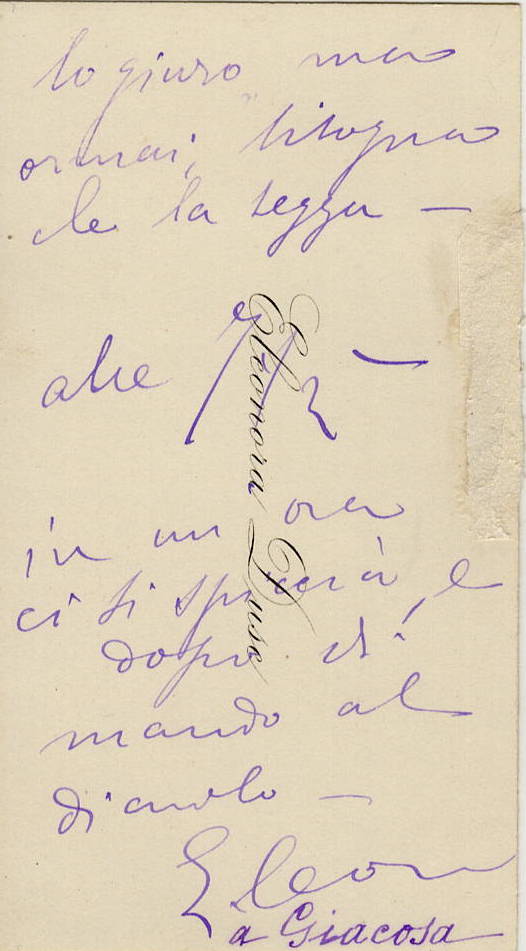 lo giuro ma
ormai, bisogna
che la legga —
alle 1 1/2 —
in un ora
ci si spiccerà, e
dopo vi
mando al
diavolo —
Eleon
a Giacosa
Eleonora Duse